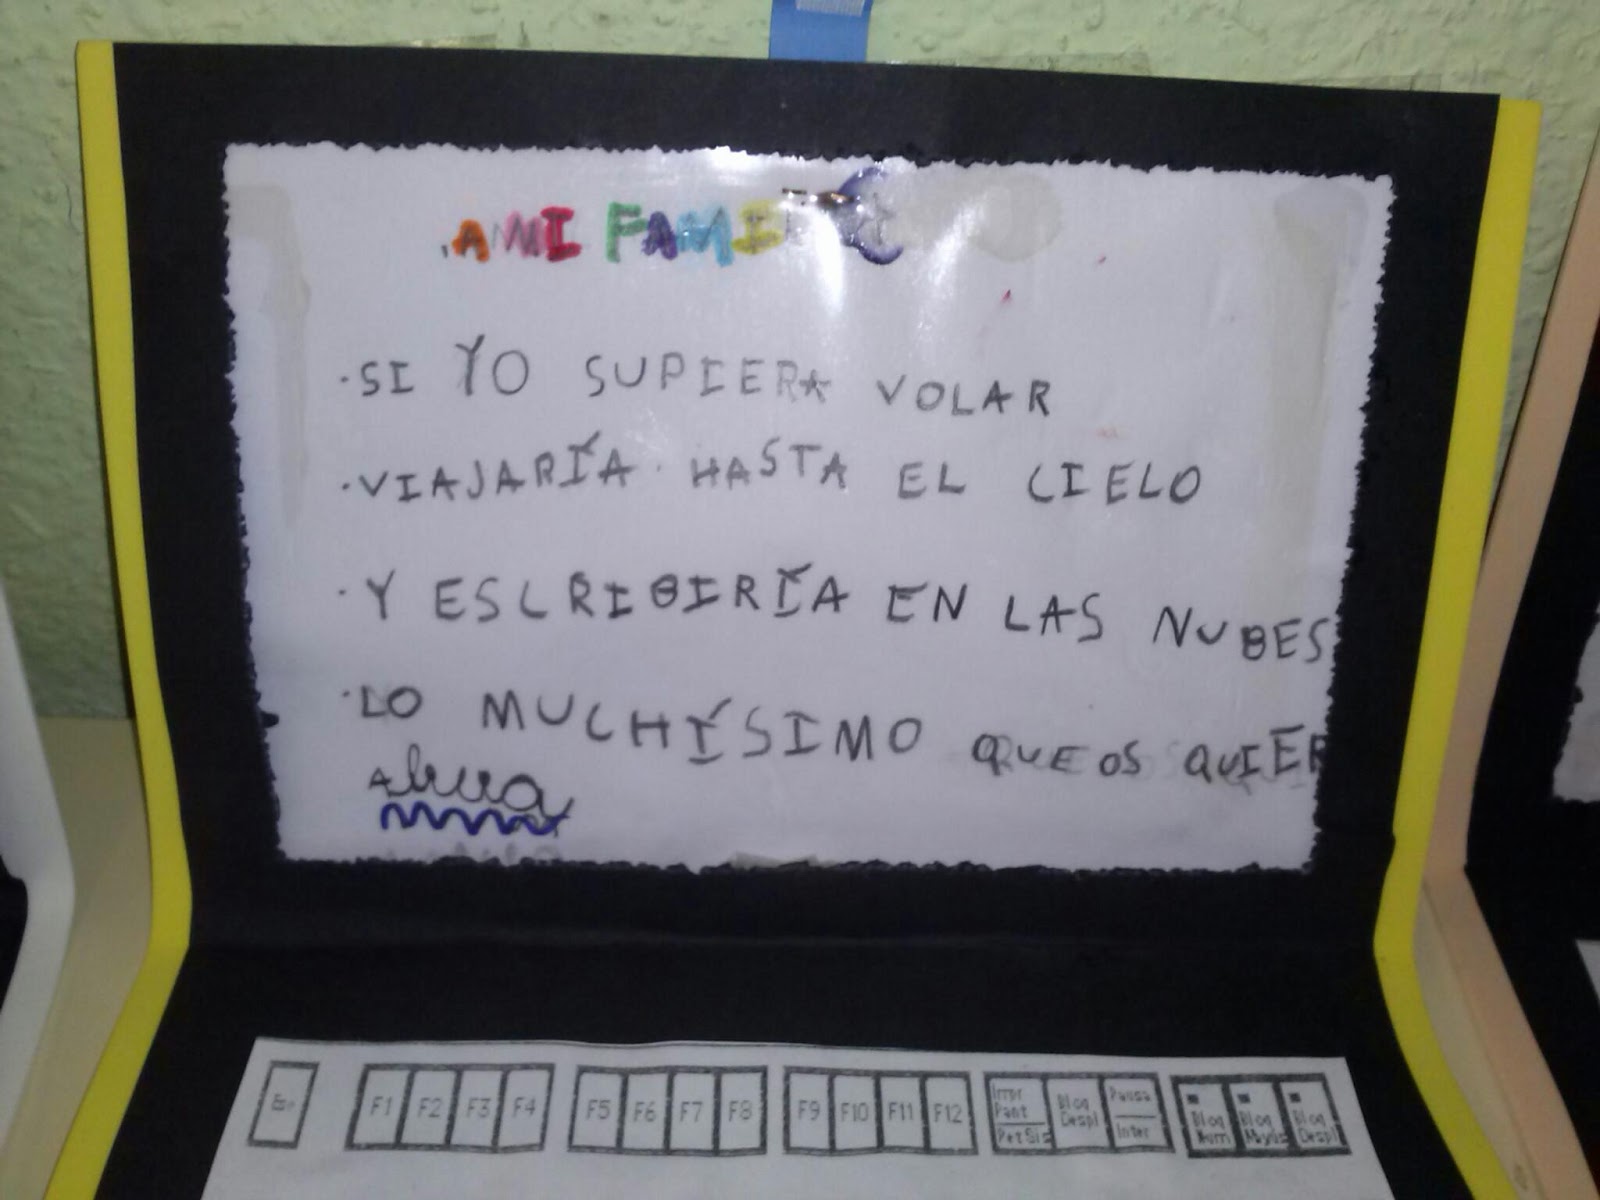 A MI FAMI
·SI YO SUPIERA VOLAR
·VIAJARÍA HASTA EL CIELO
·Y ESCRIBIRÍA EN LAS NUBES
·LO MUCHÍSIMO QUE OS QUIER
Esc F1 F2 F3 F4 F5 F6 F7 F8 F9 F10 F11 F12 Impr Pant PetSis Bloq Despl Pausa Inter Bloq Num Bloq Mayús Bloq Despl